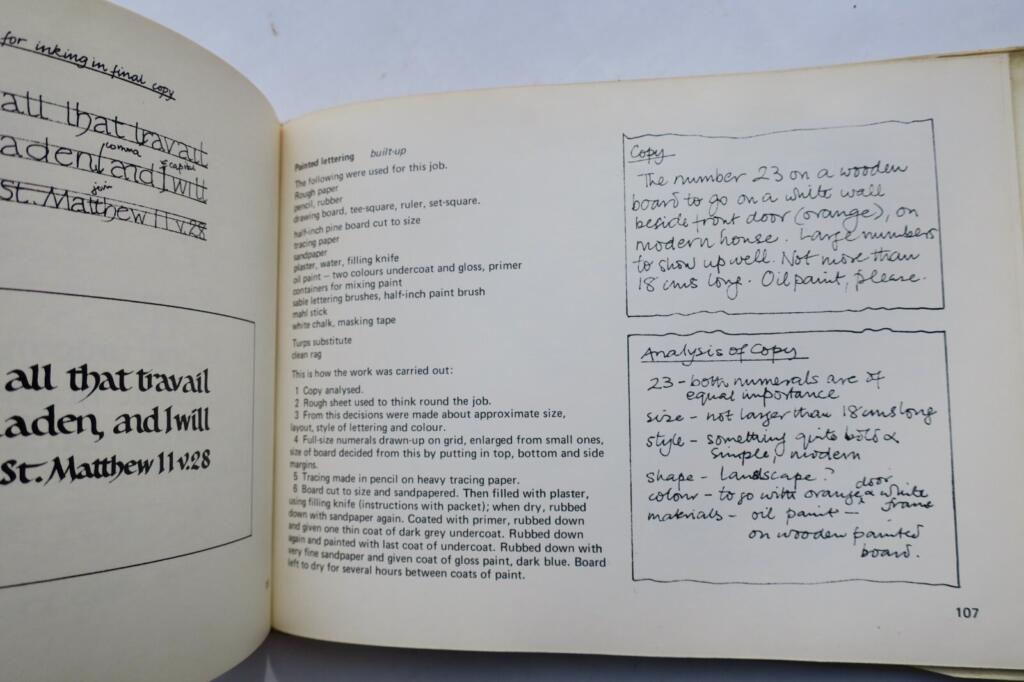 for inking in final copy
all that travail
comma
aden and I will
& capital
join
St. Matthew 11 v.28
all that travail
aden, and I will
St. Matthew 11 v.28
Painted lettering built-up
The following were used for this job.
Rough paper
pencil, rubber
drawing board, tee-square, ruler, set-square.
half-inch pine board cut to size
tracing paper
sandpaper
plaster, water, filling knife
oil paint – two colours undercoat and gloss, primer
containers for mixing paint
sable lettering brushes, half-inch paint brush
mahl stick
white chalk, masking tape
Turps substitute
clean rag
This is how the work was carried out:
1 Copy analysed.
2 Rough sheet used to think round the job.
3 From this decisions were made about approximate size,
layout, style of lettering and colour.
4 Full-size numerals drawn-up on grid, enlarged from small ones,
size of board decided from this by putting in top, bottom and side
margins.
5 Tracing made in pencil on heavy tracing paper.
6 Board cut to size and sandpapered. Then filled with plaster,
using filling knife (instructions with packet); when dry, rubbed
down with sandpaper again. Coated with primer, rubbed down
and given one thin coat of dark grey undercoat. Rubbed down
again and painted with last coat of undercoat. Rubbed down with
very fine sandpaper and given coat of gloss paint, dark blue. Board
left to dry for several hours between coats of paint.
Copy
The number 23 on a wooden
board to go on a white wall
beside front door (orange), on
modern house. Large numbers
to show up well. Not more than
18 cms long. Oil paint, please.
Analysis of Copy
23 - both numerals are of
equal importance
size - not larger than 18 cms long
style - something quite bold &
simple, modern
shape - landscape?
colour - to go with orange door & white frame
materials - oil paint -
on wooden painted
board.
107